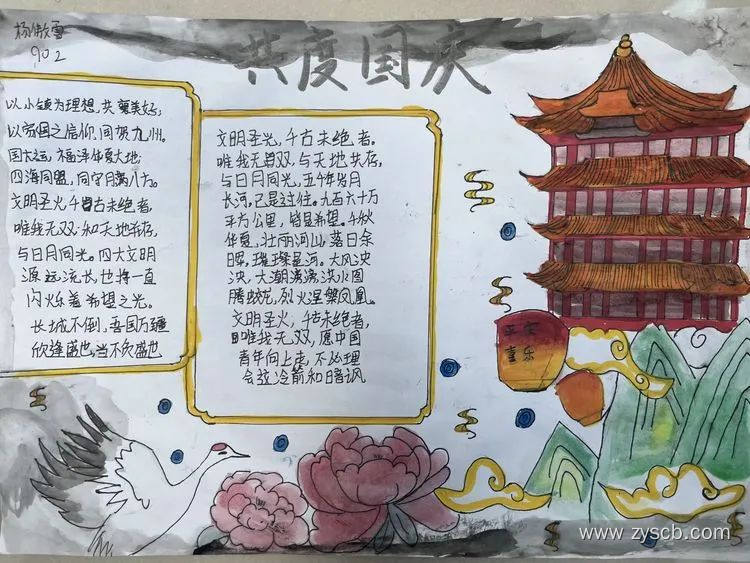 杨傲雪
902
共度国庆
以小镇为理想,共襄美好,
以家国之信仰,同贺九州。
国大运,福泽华夏大地
四海同盟,同守月满八方。
文明圣火千古未绝者,
唯我无双·和天地并存,
与日月同光。四大文明
源远流长也将一直
闪烁着希望之光。
长城不倒,吾国万疆
欣逢盛世,当不欣盛世
文明圣火,千古未绝者。
唯我无双,与天地共存,
与日月同光,五千年岁月
长河,已是过往。九百六十万
平方公里,皆是希望。千秋
华夏,壮丽河山,落日余
晖,璀璨星河。大风泱
泱,大潮滂滂,洪水图
腾蛟龙,烈火涅槃凤凰。
文明圣火,千古未绝者,
唯我无双,愿中国
青年向上走,不必理
会这冷箭和暗讽
平安
喜乐
www.zyscb.com